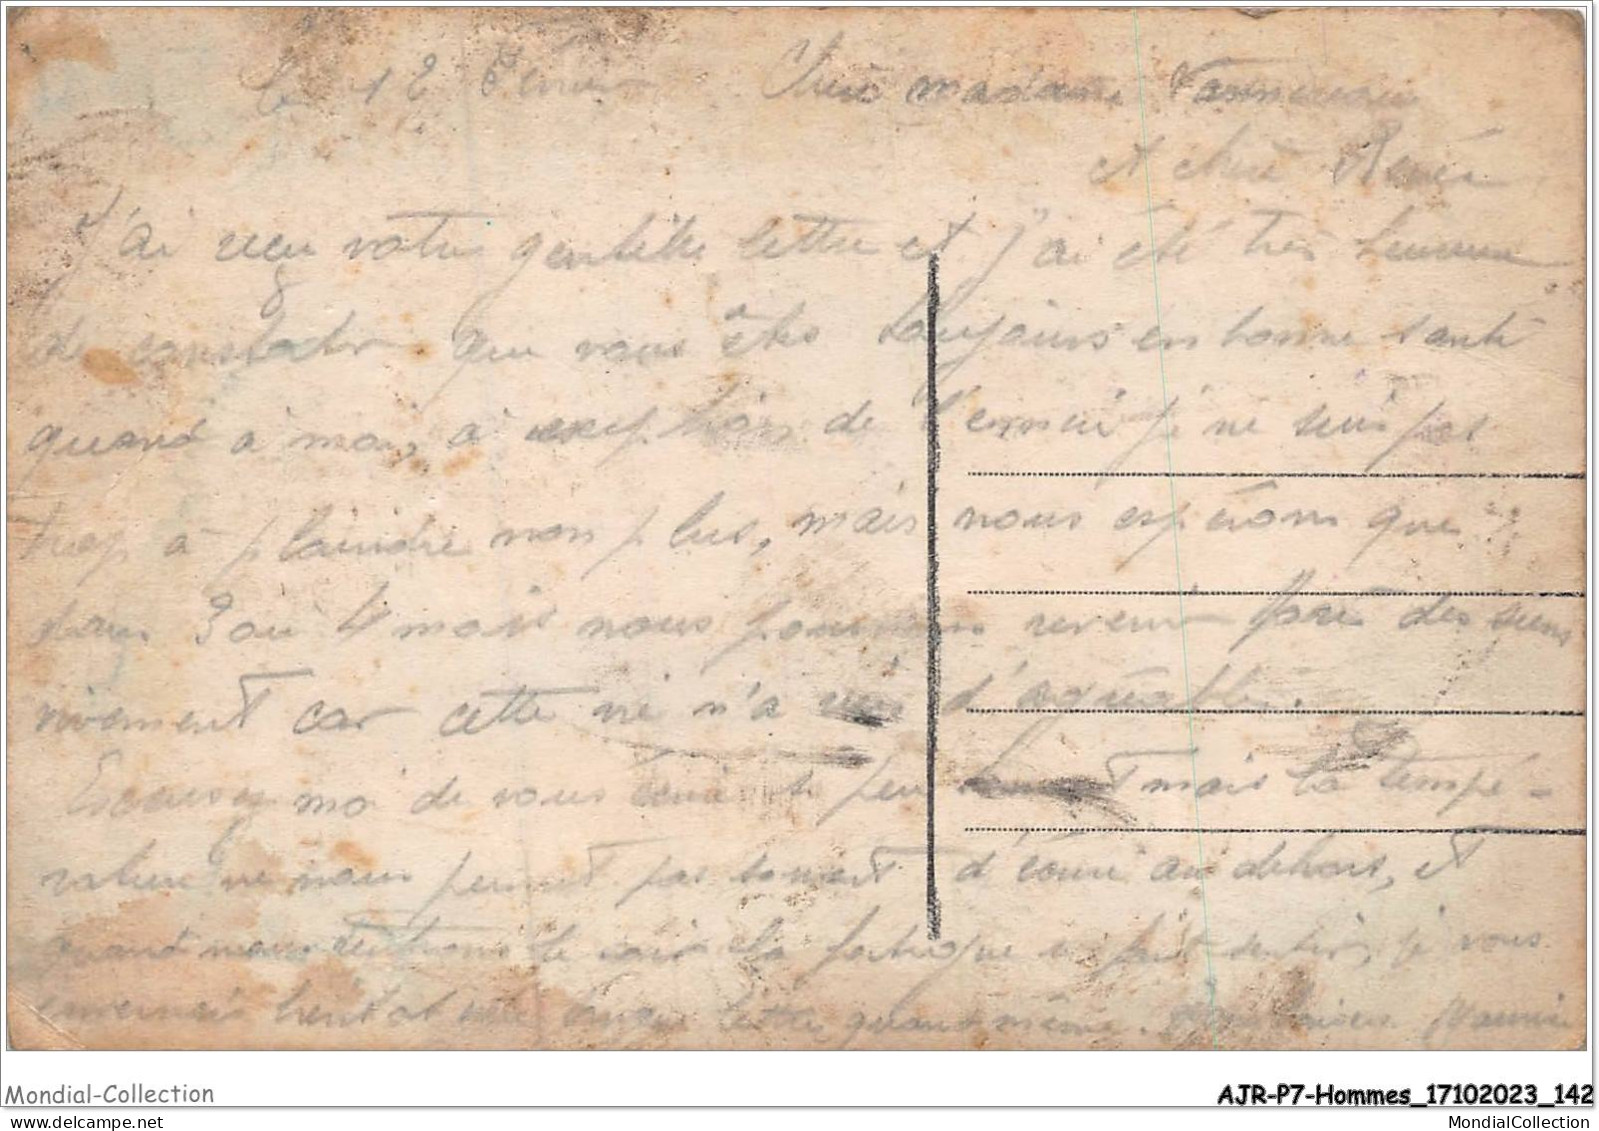 Le 12 Février Chère madame
et chère Renée
J'ai reçu votre gentille lettre et j'ai été très heureux
de constater que vous êtes toujours en bonne santé
quand à moi, à exeption de l'ennui je ne suis pas
trop à plaindre non plus, mais nous espérons que
dans 3 ou 4 mois nous pourrons revenir près des siens
vivement car cette vie n'a rien d'agréable.
Excusez moi de vous écrire si peu souvent mais la tempé-
rature ne nous permet pas souvent d'écrire au dehors, et
quand nous rentrons le soir la fatigue se fait sentir, je vous
enverrais bientot une longue lettre quand même.
Mondial-Collection
AJR-P7-Hommes_17102023_142
MondialCollection